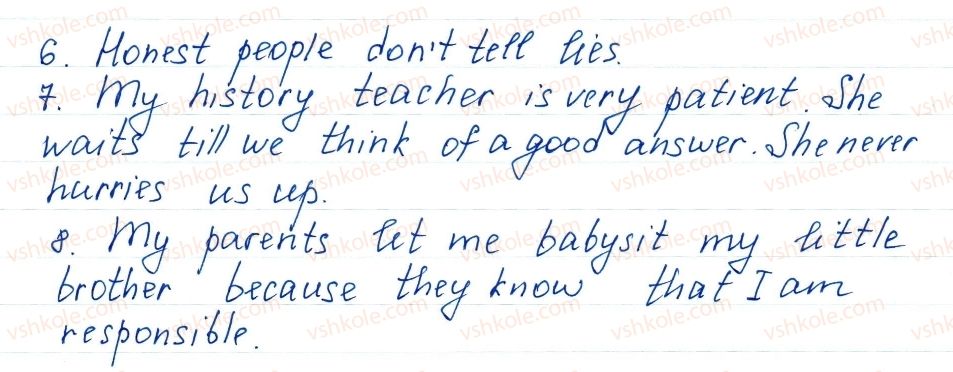 6. Honest people don't tell lies.
7. My history teacher is very patient. She
waits till we think of a good answer. She never
hurries us up.
8. My parents let me babysit my little
brother because they know that I am
responsible.